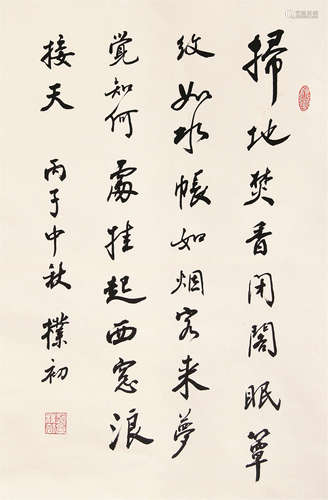 掃地焚香閉閣眠簟
紋如水帳如烟客来夢
觉知何處挂起西窓浪
接天 丙子中秋 樸初